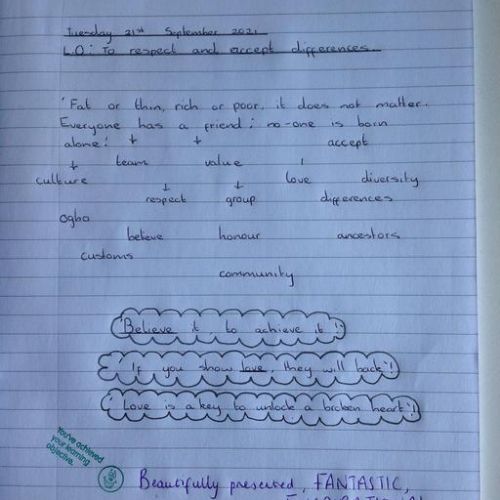 Tuesday 21st September 2021
L.O: To respect and accept differences
'Fat or thin, rich or poor, it does not matter.
Everyone has a friend; no-one is born
alone!
accept
team value
culture love diversity
respect group differences
Ogbo
believe honour ancestors
customs
community
'Believe it, to achieve it'!
'If you show love, they will back'!
'Love is a key to unlock a broken heart'!
You've achieved
your learning
objective.
Beautifully presented, FANTASTIC,